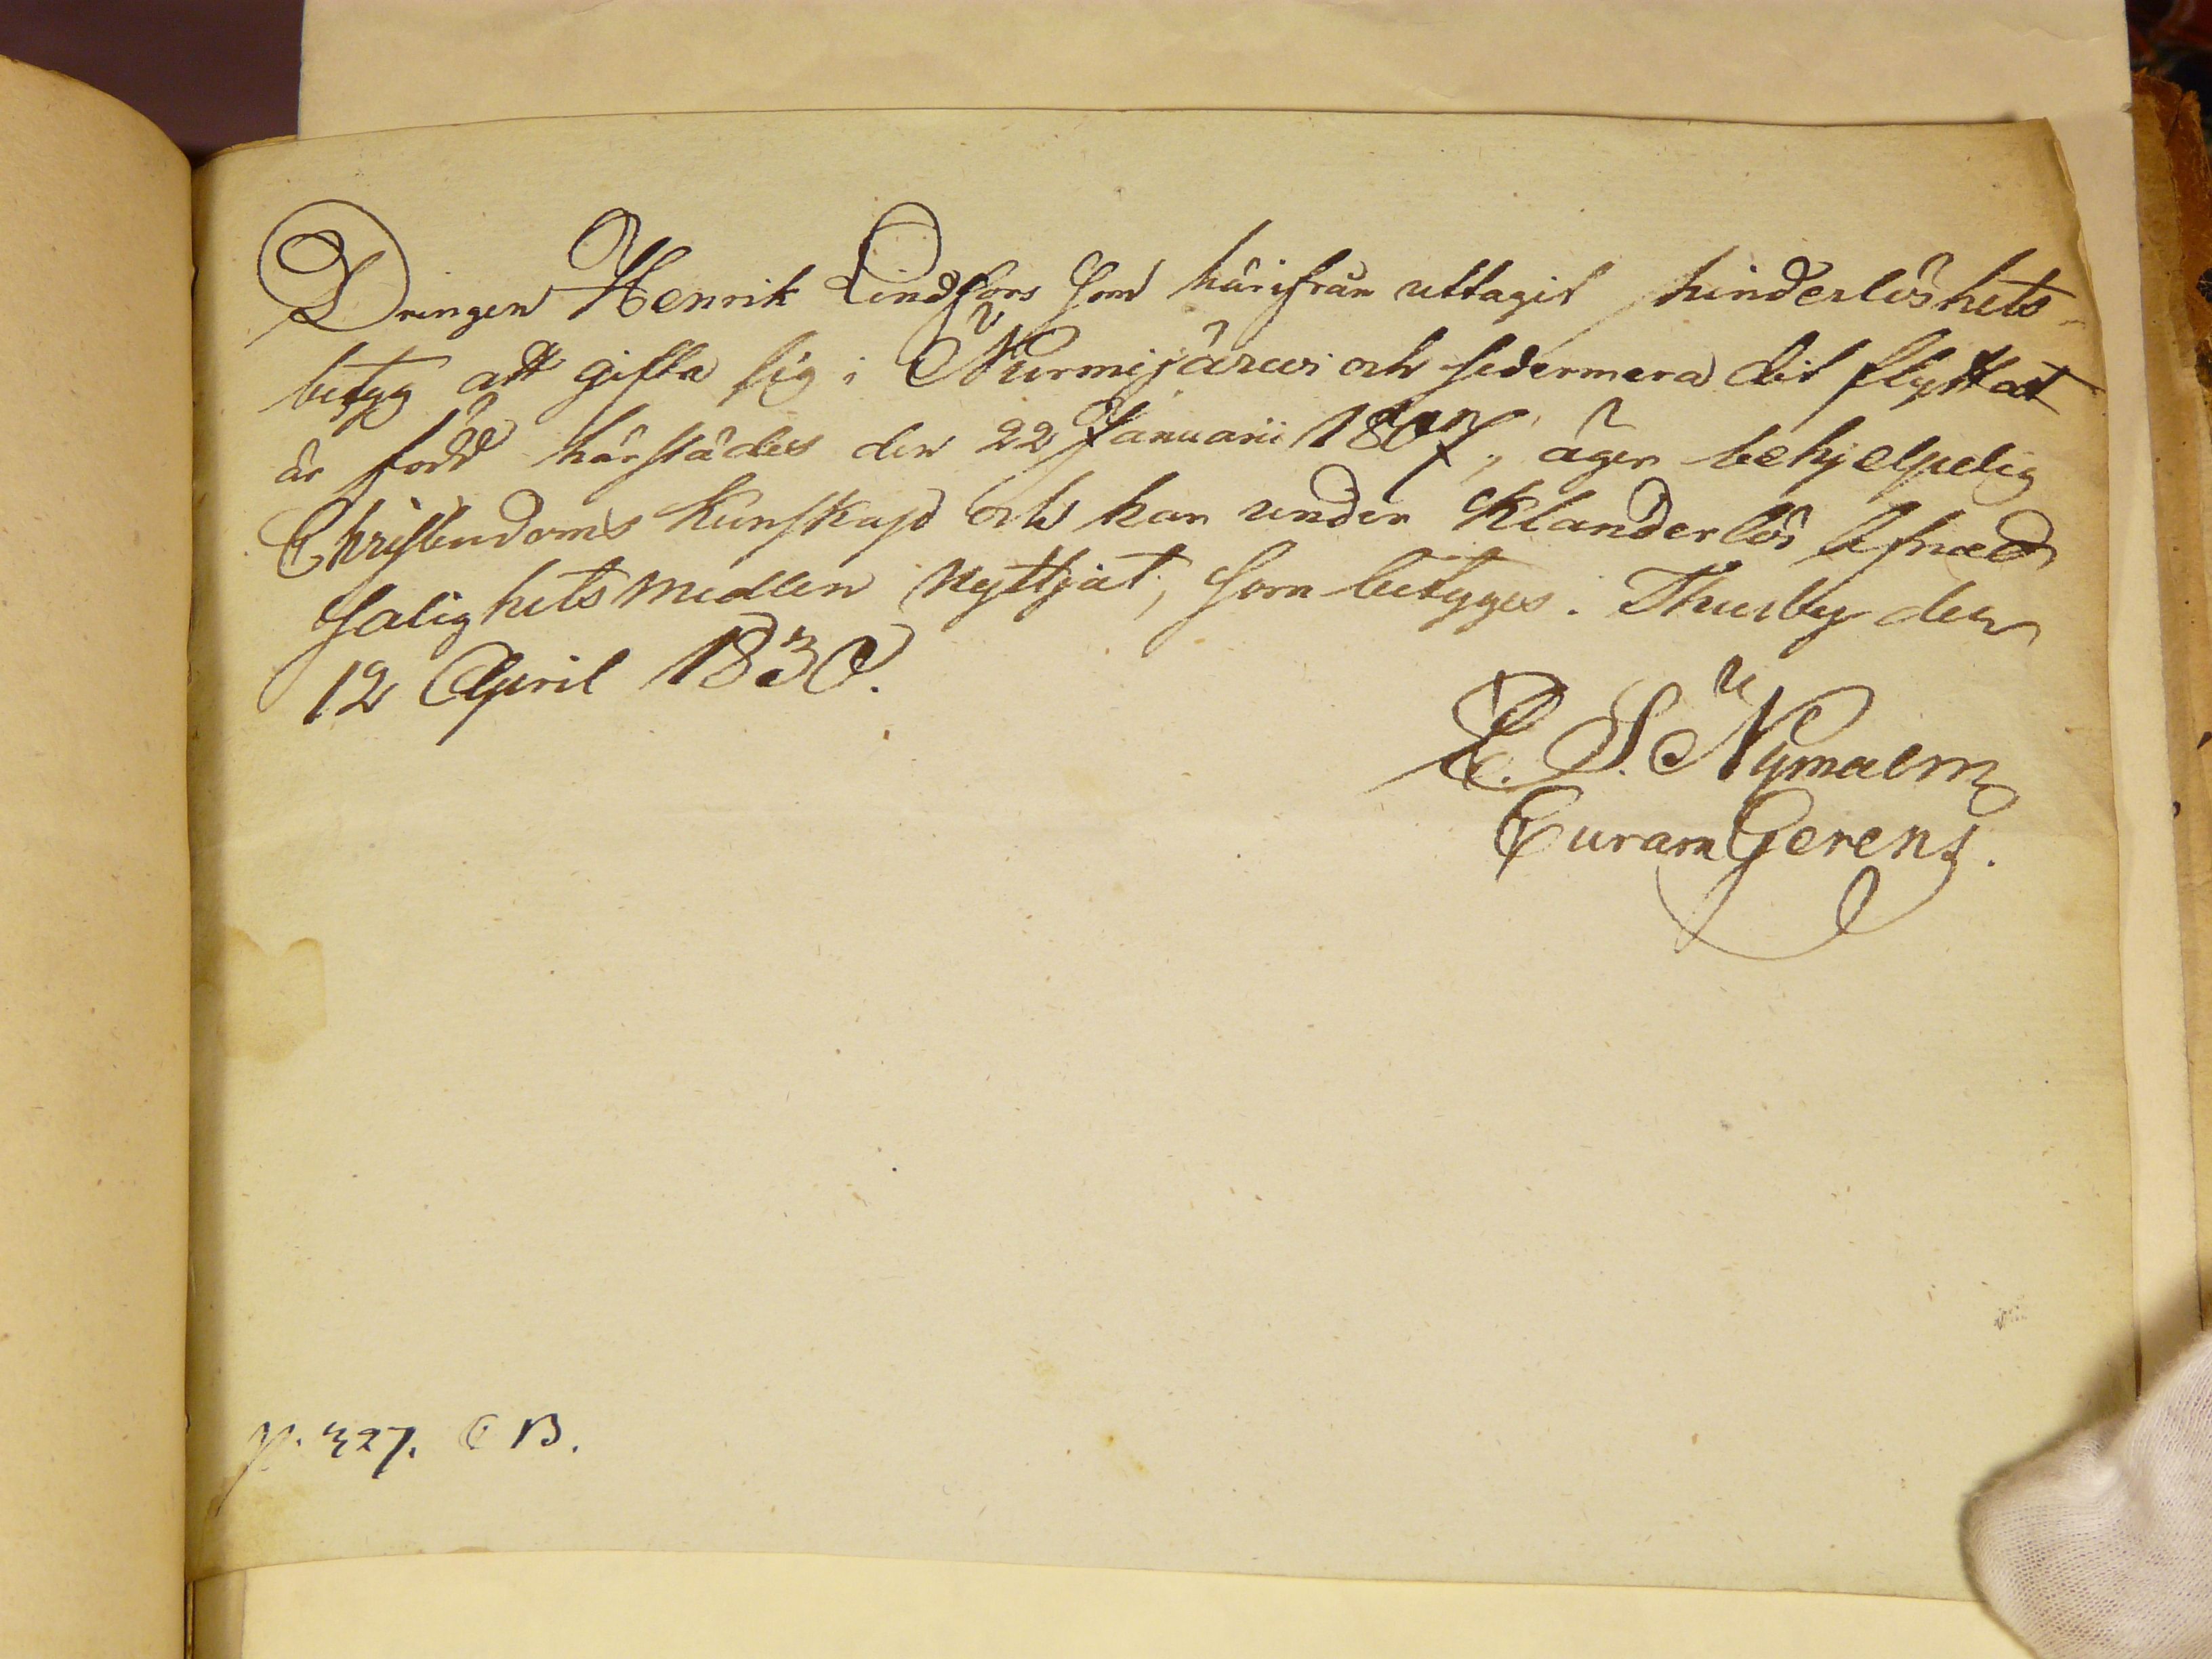 Drengen Henrik Lindfors som härifrån uttagit hinderlöshets-
betyg att gifta sig i Nurmijärwi och sedermera dit flyttat
är född härstädes den 22 Januarii 1807, äger behjelpelig
Christendoms kunskap och har under klanderlös lefnad
salighets medlen nyttjat, som betygges. Thusby den
12 April 1830.
E. S. Nymalm
Curam Gerens.
p. 327. C B.